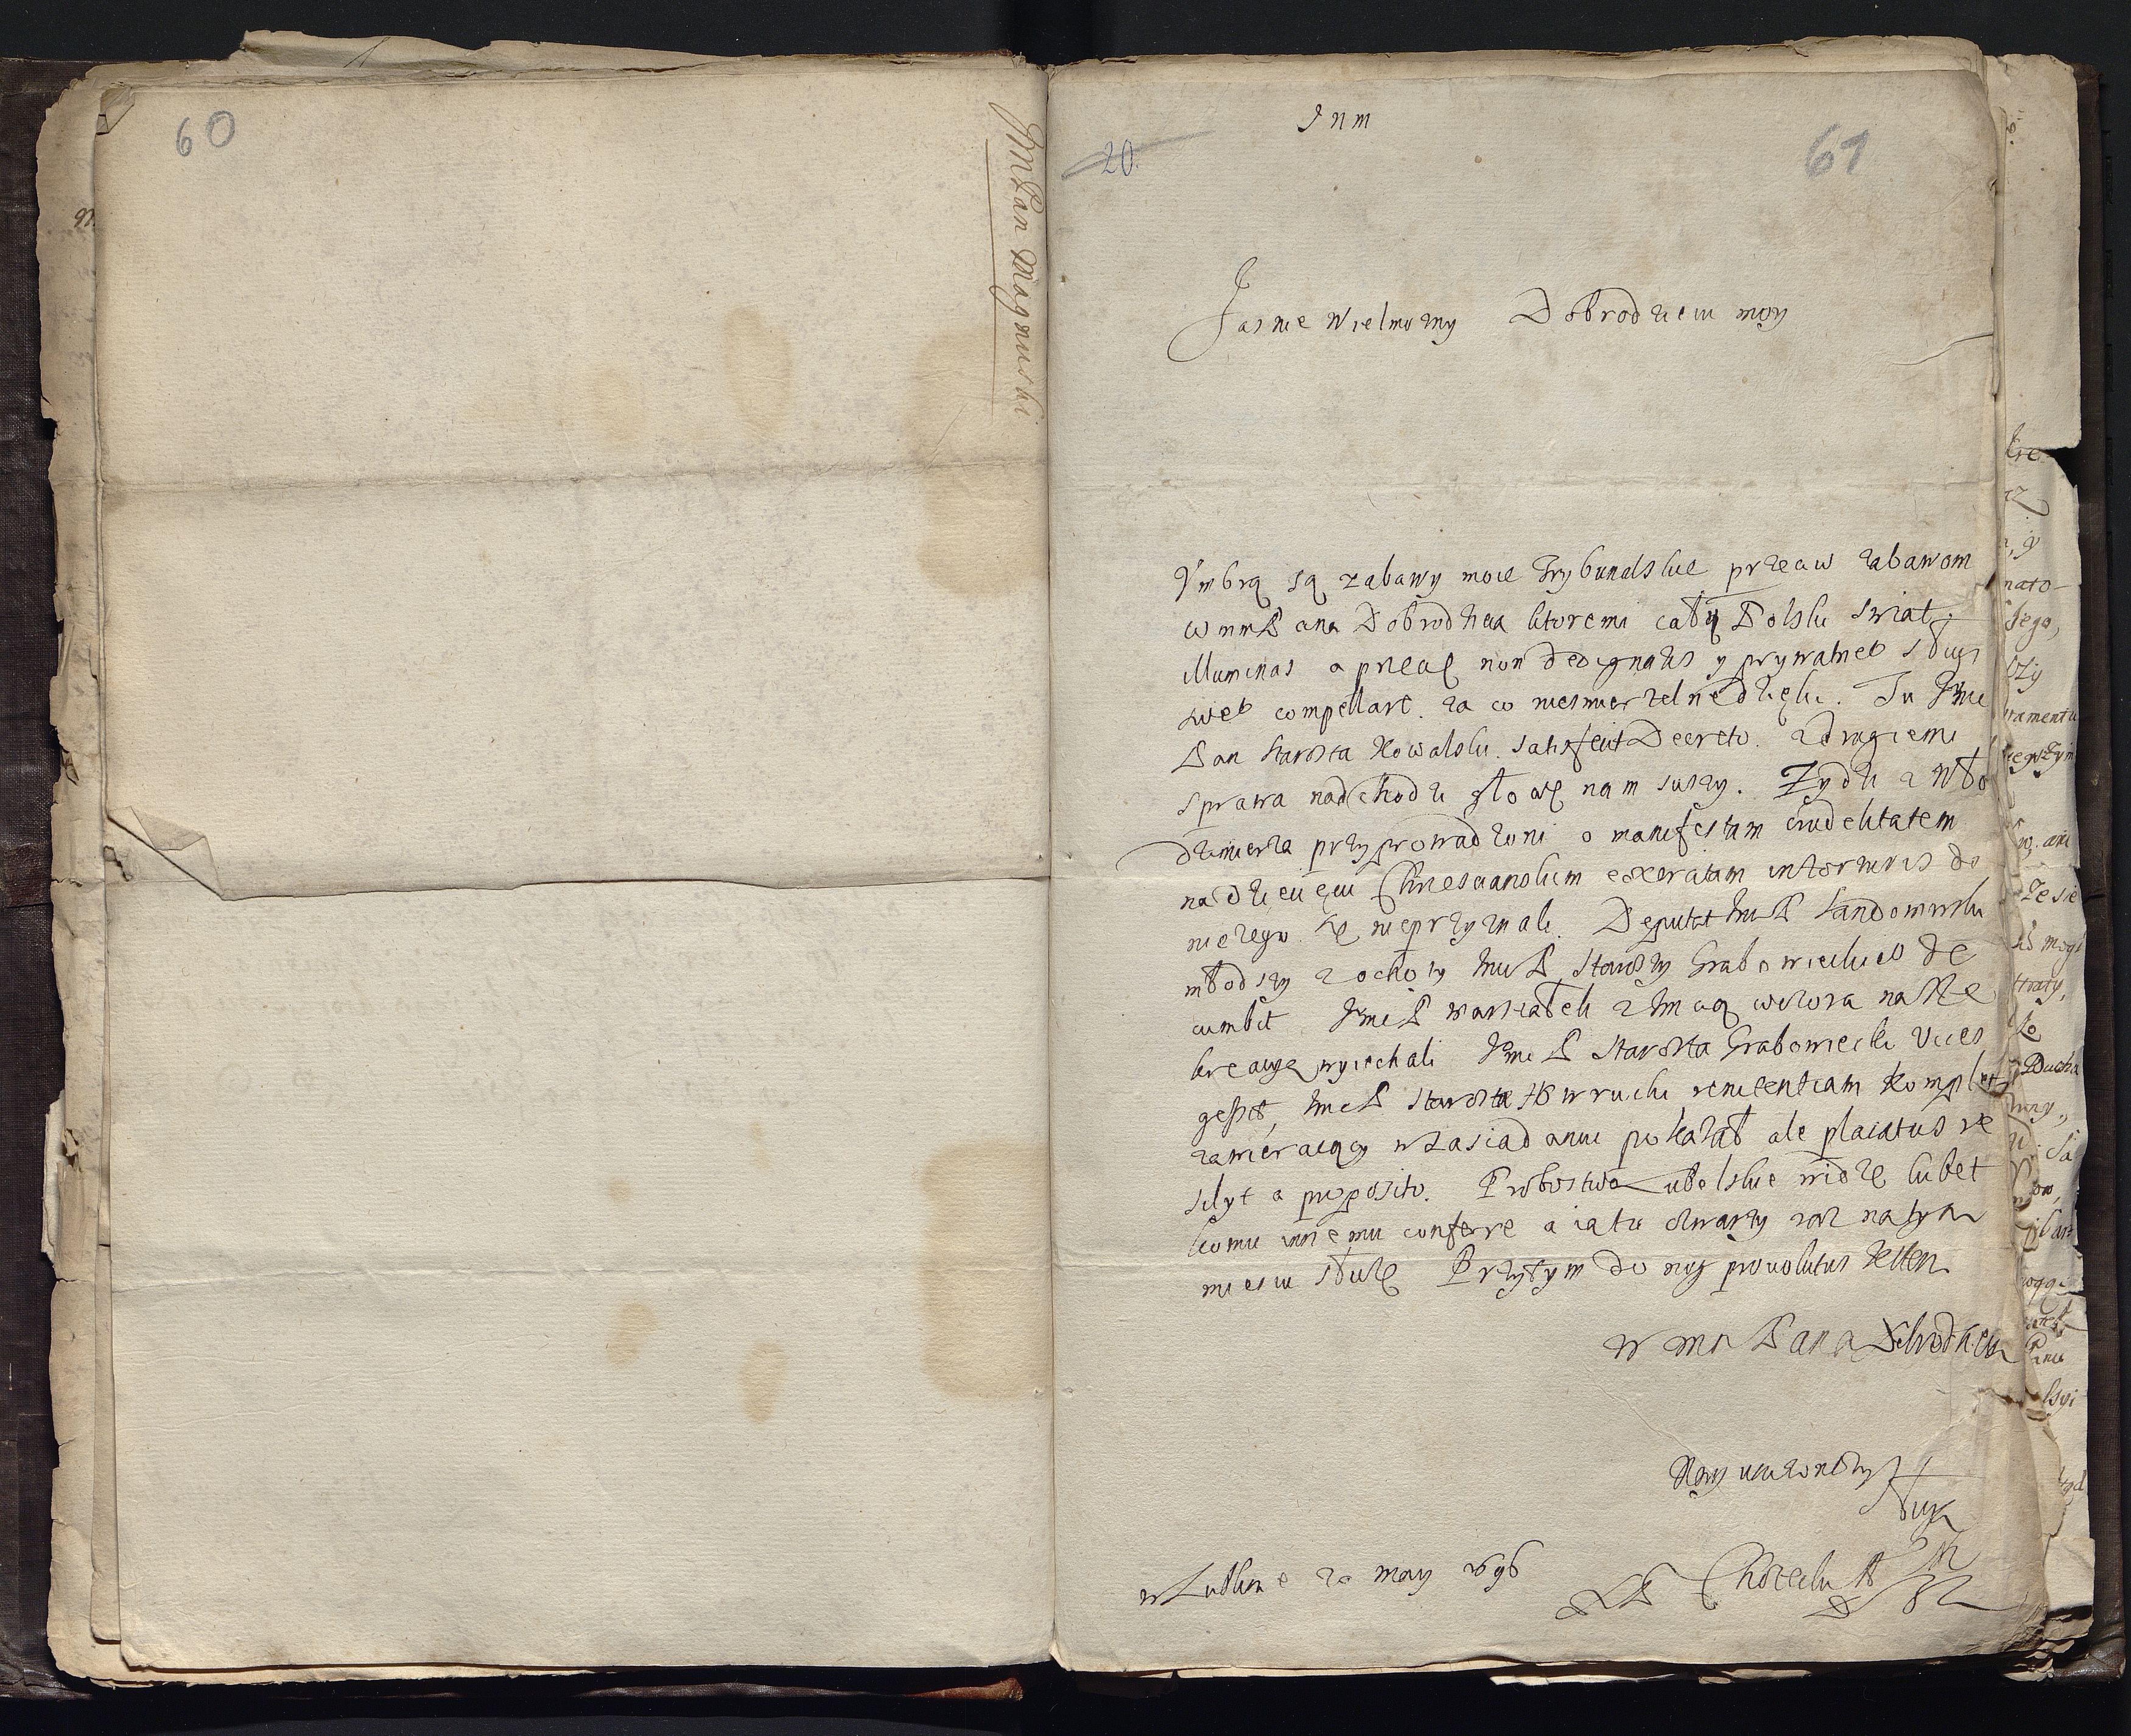 60
JM Pan Magnuski
J n m
20.
61
Jasnie Wielmozny Dobrodzieiu moy
Vmbrą są zabawy moie Trybunalskie przeciw zabawom
Pana Dobrodzieia ktoremi całą Polski swiat
illuminas a przecię non dedignatus y prywatneº sługi
sweº compellare. za co niesmiertelne dzięki. Tu Jmci
Pan Starosta Kowalski satisfecit Decreto. a drugiemi
sprawa nadchodzi głowę nam suszy. Zydzi z Wło
dzimierza przyprowadzoni o manifestam crudelitatem
nad dziecięciu Chrzescianskim in torturis do
niczego sie nieprzyznali. Deputat JmP Sandomirski
młodszy z ochoty Jmci P Starosty Grabowieckieº de
cumbit JmciP Marszałek z Jmcią wczora na Re
kreacyą wyiechali Jmci P Starosta Grabowiecki vices
gessit, JmciP Starosta Owrucki renitentiam komplet
zawieraiący w zasiadaniu pokazał ale placatus re
a proposito. Probostwo Lubelskie widzę lubet
komu innemu conferre a ia tu czwarty raz na tym
miescu służę Przytym do nog prouolutus iestem
W mm Pana Dobrodzieia
Nayunizonszy
sługa
w Lublinie 20 may 1696